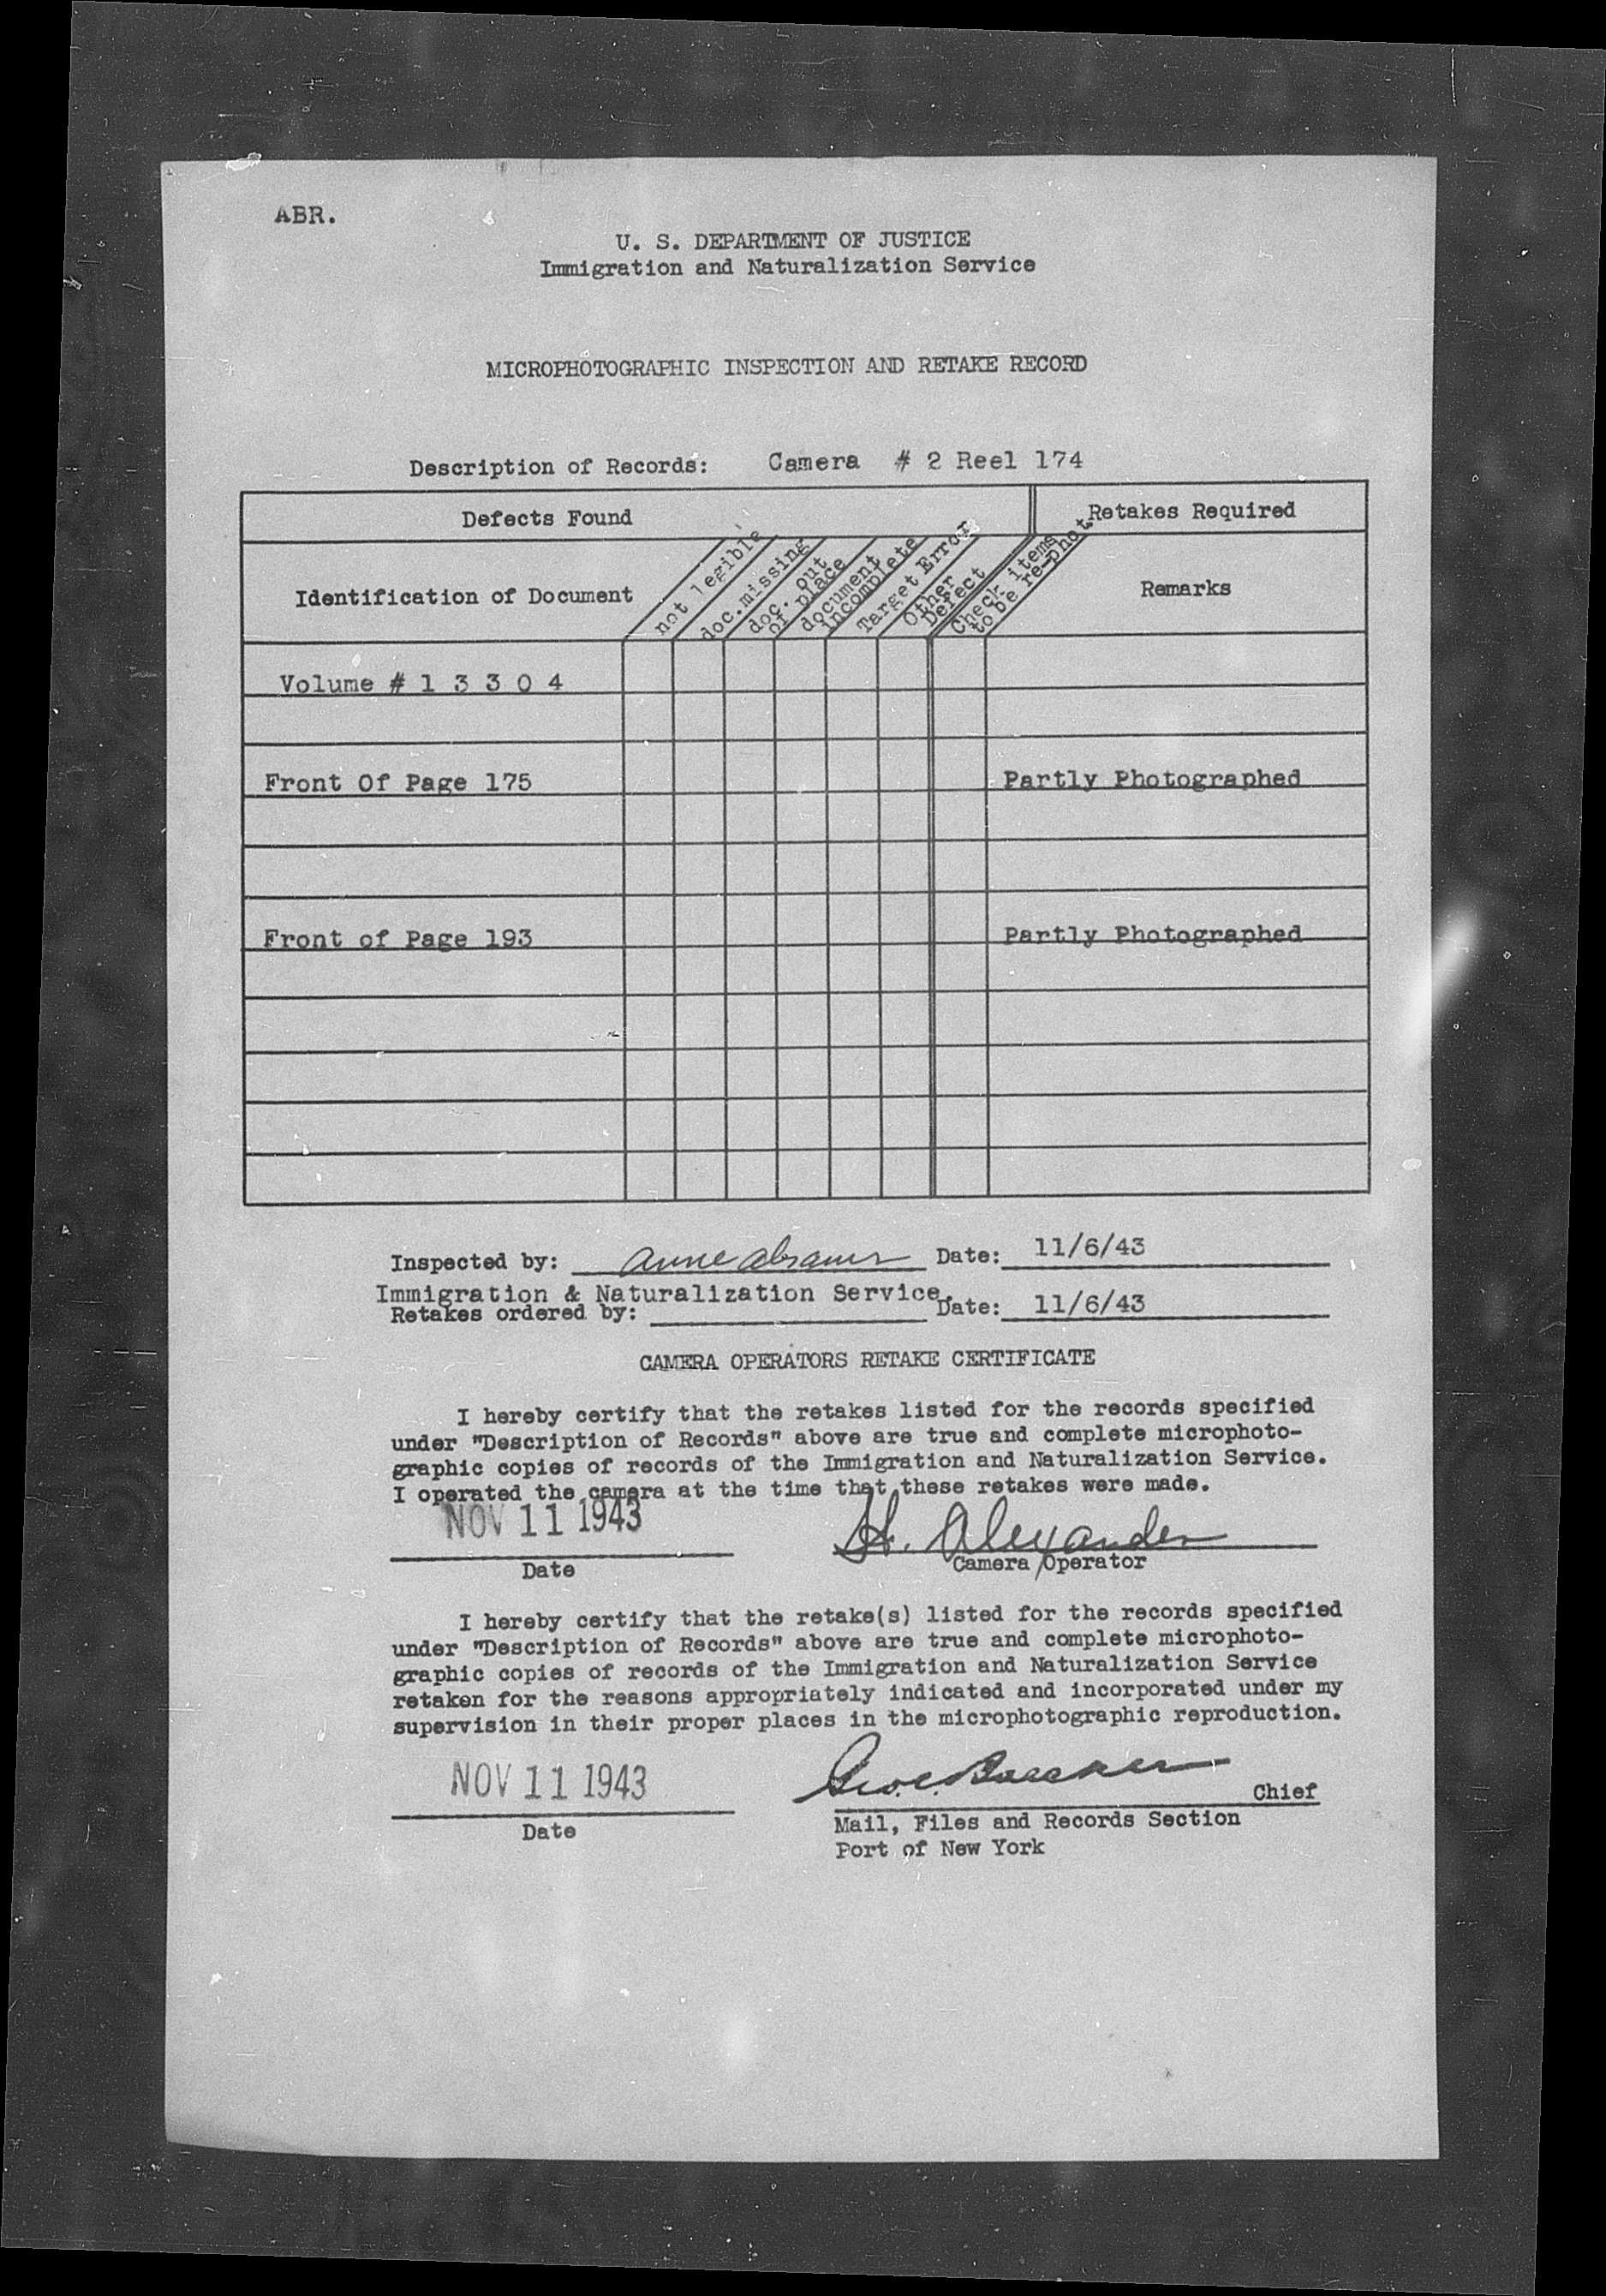 ABR.
U. S. DEPARTMENT OF JUSTICE
Immigration and Naturalization Service
MICROPHOTOGRAPHIC INSPECTION AND RETAKE RECORD
Description of Records: Camera # 2 Reel 174
Defects Found
Retakes Required
Identification of Document
not legible
doc. missing
doc. out
of place
document
incomplete
Target Error
Other
Defect
Check items
to be re-phot.
Remarks
Volume # 1 3 3 0 4
Front Of Page 175 Partly Photographed
Front of Page 193 Partly Photographed
Inspected by: Anne Abrams Date: 11/6/43
Immigration & Naturalization Service.
Retakes ordered by: Date: 11/6/43
CAMERA OPERATORS RETAKE CERTIFICATE
I hereby certify that the retakes listed for the records specified
under "Description of Records" above are true and complete microphoto-
graphic copies of records of the Immigration and Naturalization Service.
I operated the camera at the time that these retakes were made.
NOV 11 1943 H. Alexander
Date Camera Operator
I hereby certify that the retake(s) listed for the records specified
under "Description of Records" above are true and complete microphoto-
graphic copies of records of the Immigration and Naturalization Service
retaken for the reasons appropriately indicated and incorporated under my
supervision in their proper places in the microphotographic reproduction.
NOV 11 1943 Chief
Date Mail, Files and Records Section
Port of New York